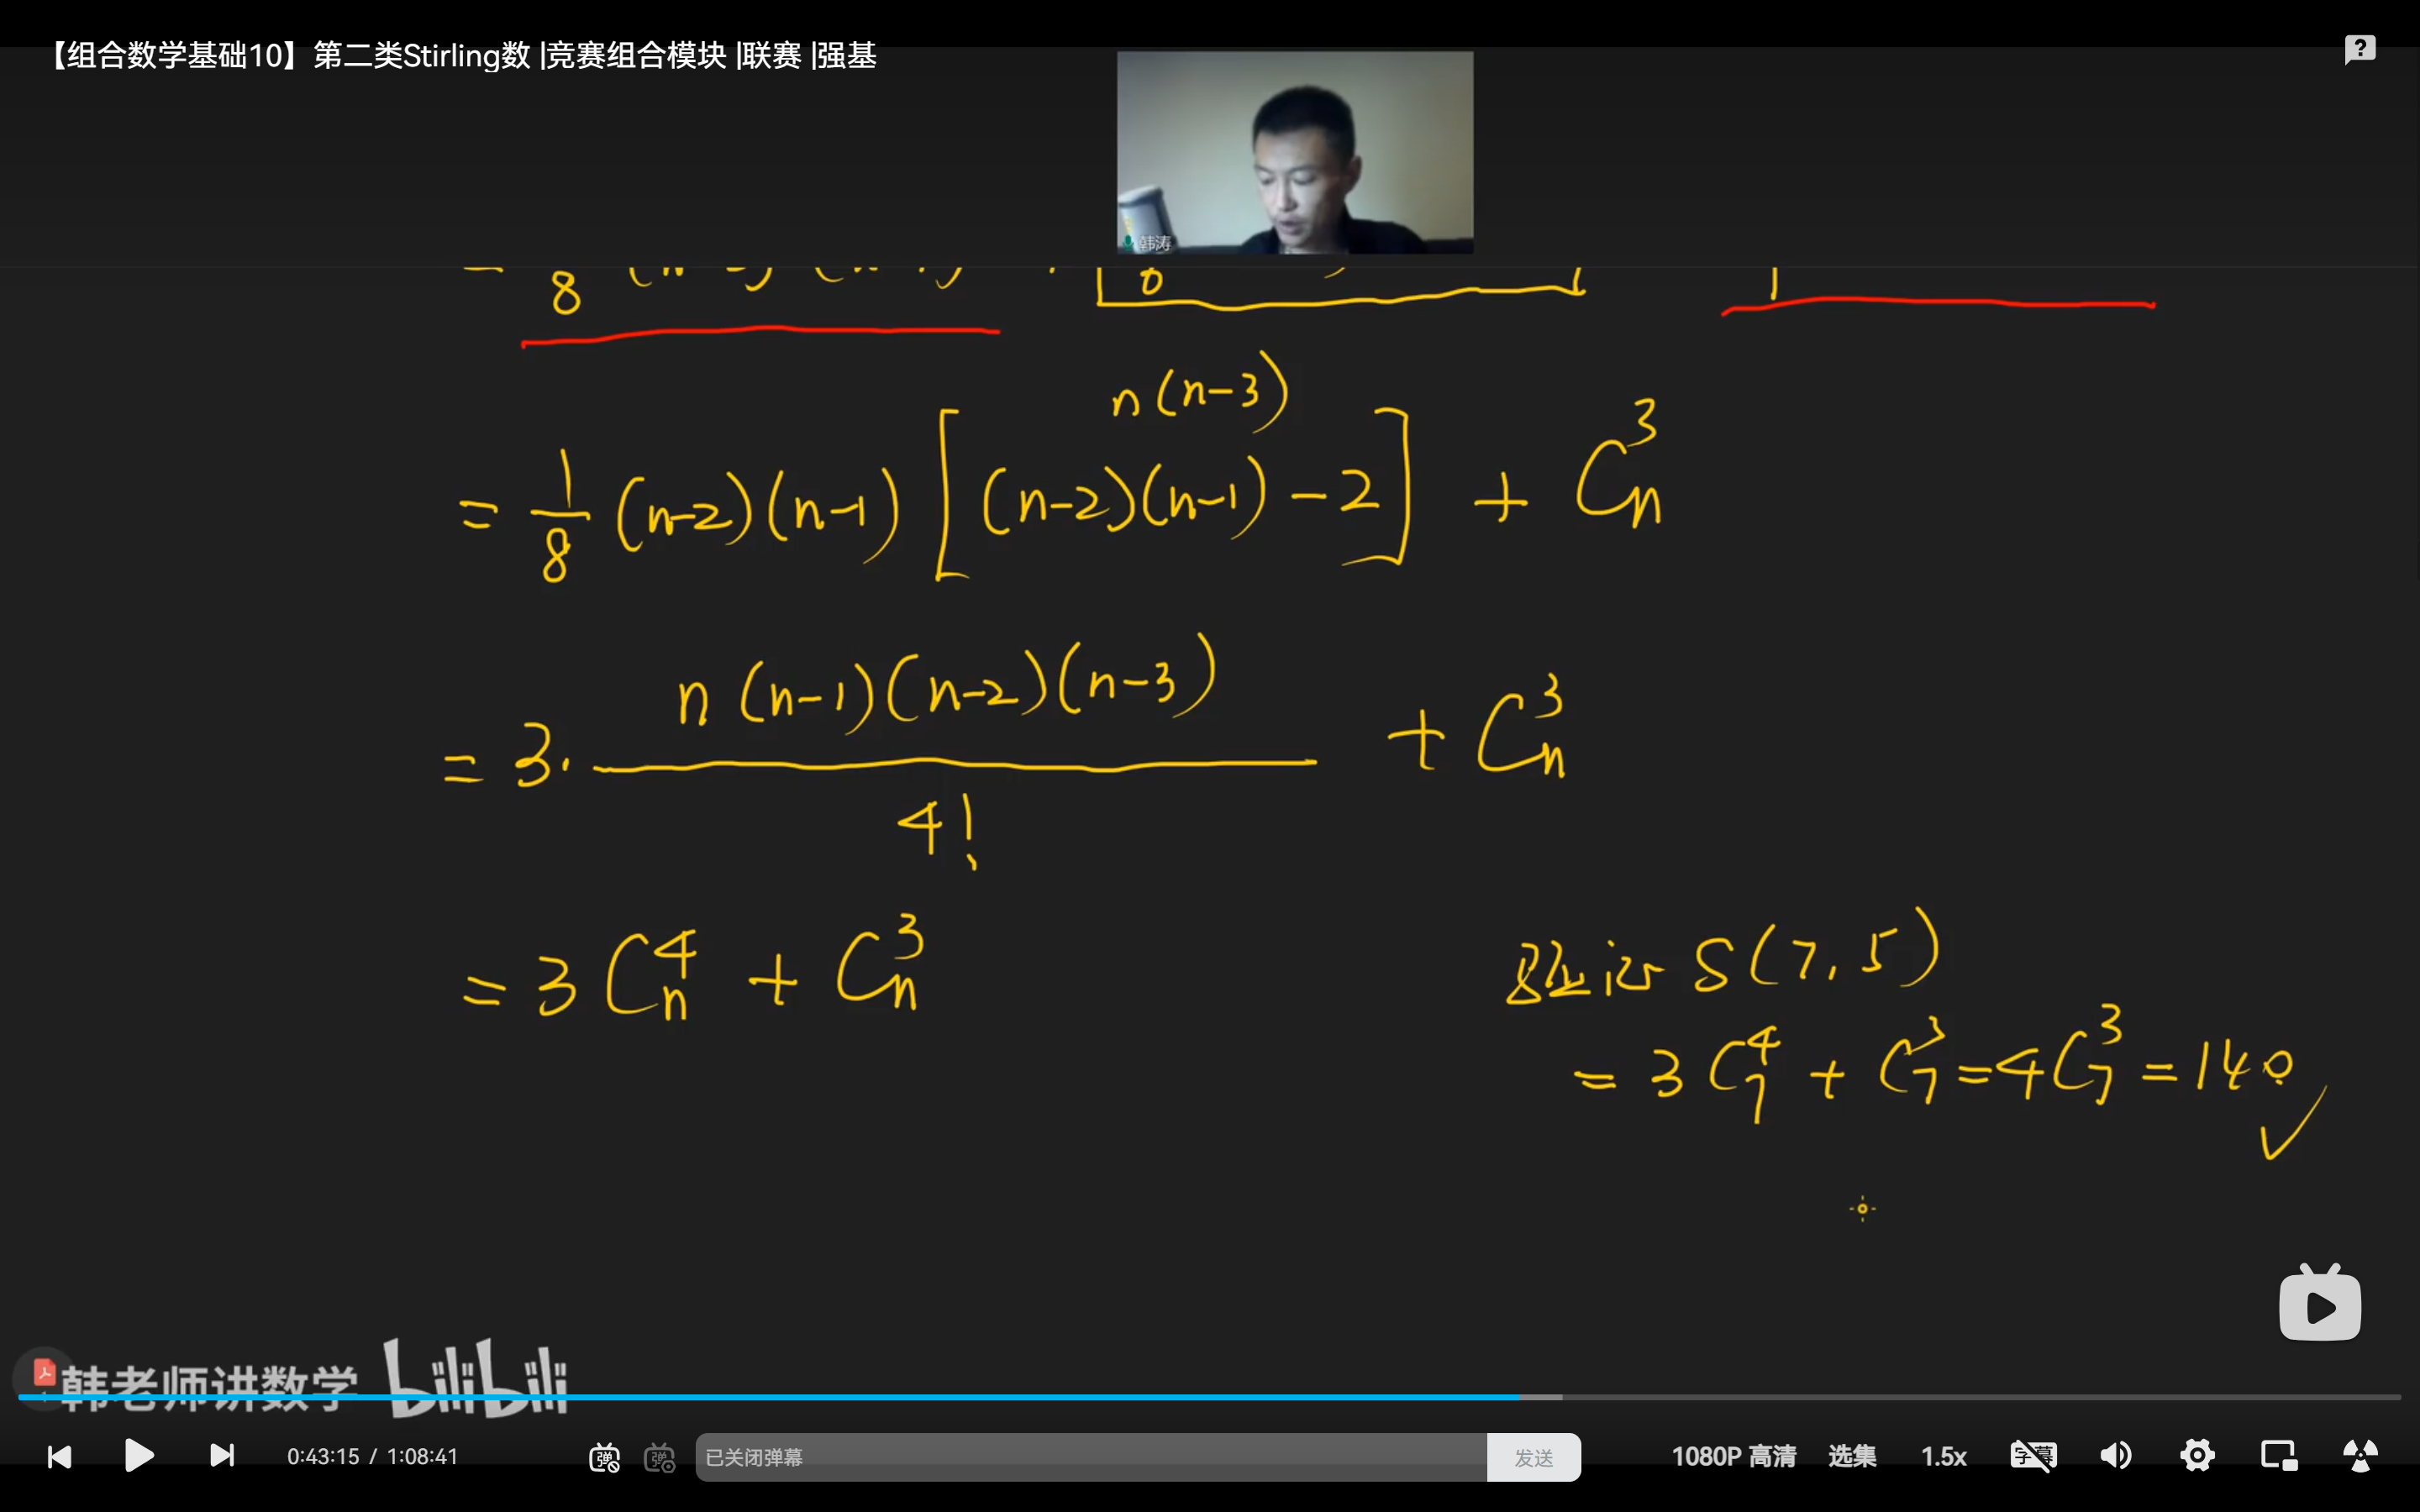 【组合数学基础10】第二类Stirling数 |竞赛组合模块 |联赛 |强基
韩涛
8
n(n-3)
= 1/8 (n-2)(n-1) [ (n-2)(n-1) - 2 ] + C_n^3
= 3. n(n-1)(n-2)(n-3) / 4! + C_n^3
= 3 C_n^4 + C_n^3
验证 S(7,5)
= 3 C_7^4 + C_7^3 = 4 C_7^3 = 140 ✓
韩老师讲数学 bilibili
0:43:15 / 1:08:41
弹
弹
已关闭弹幕
发送
1080P 高清
选集
1.5x
字幕